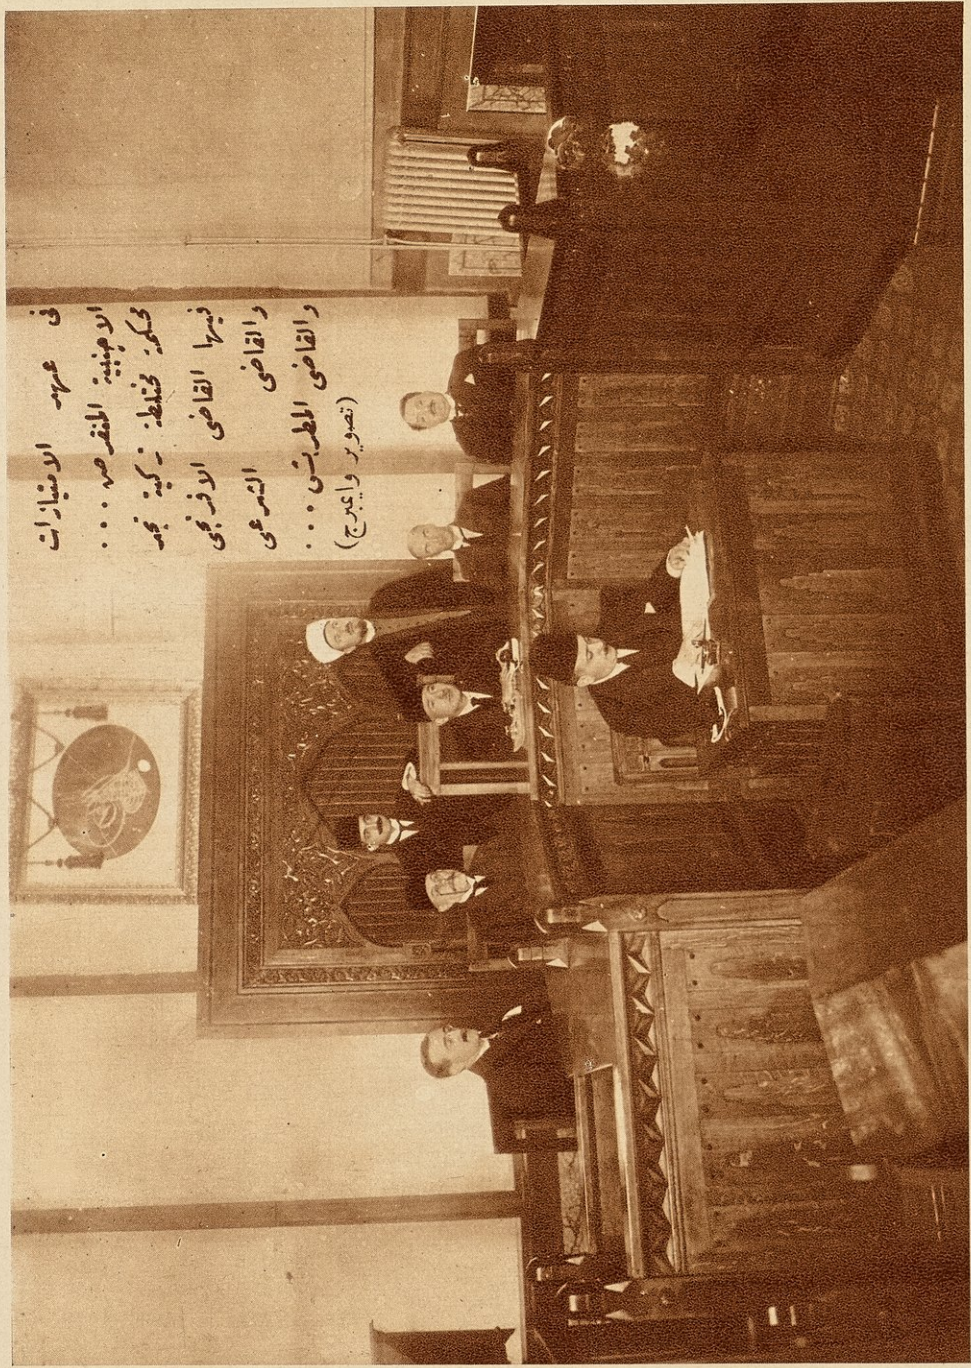 فى عهد الامتيازات
الاجنبية المنقرض ...
محكمة مختلطة تركية تجد
فيها القاضى الافرنجى
والقاضى الشرعى
والقاضى المطربش ...
(تصوير واينبرج)